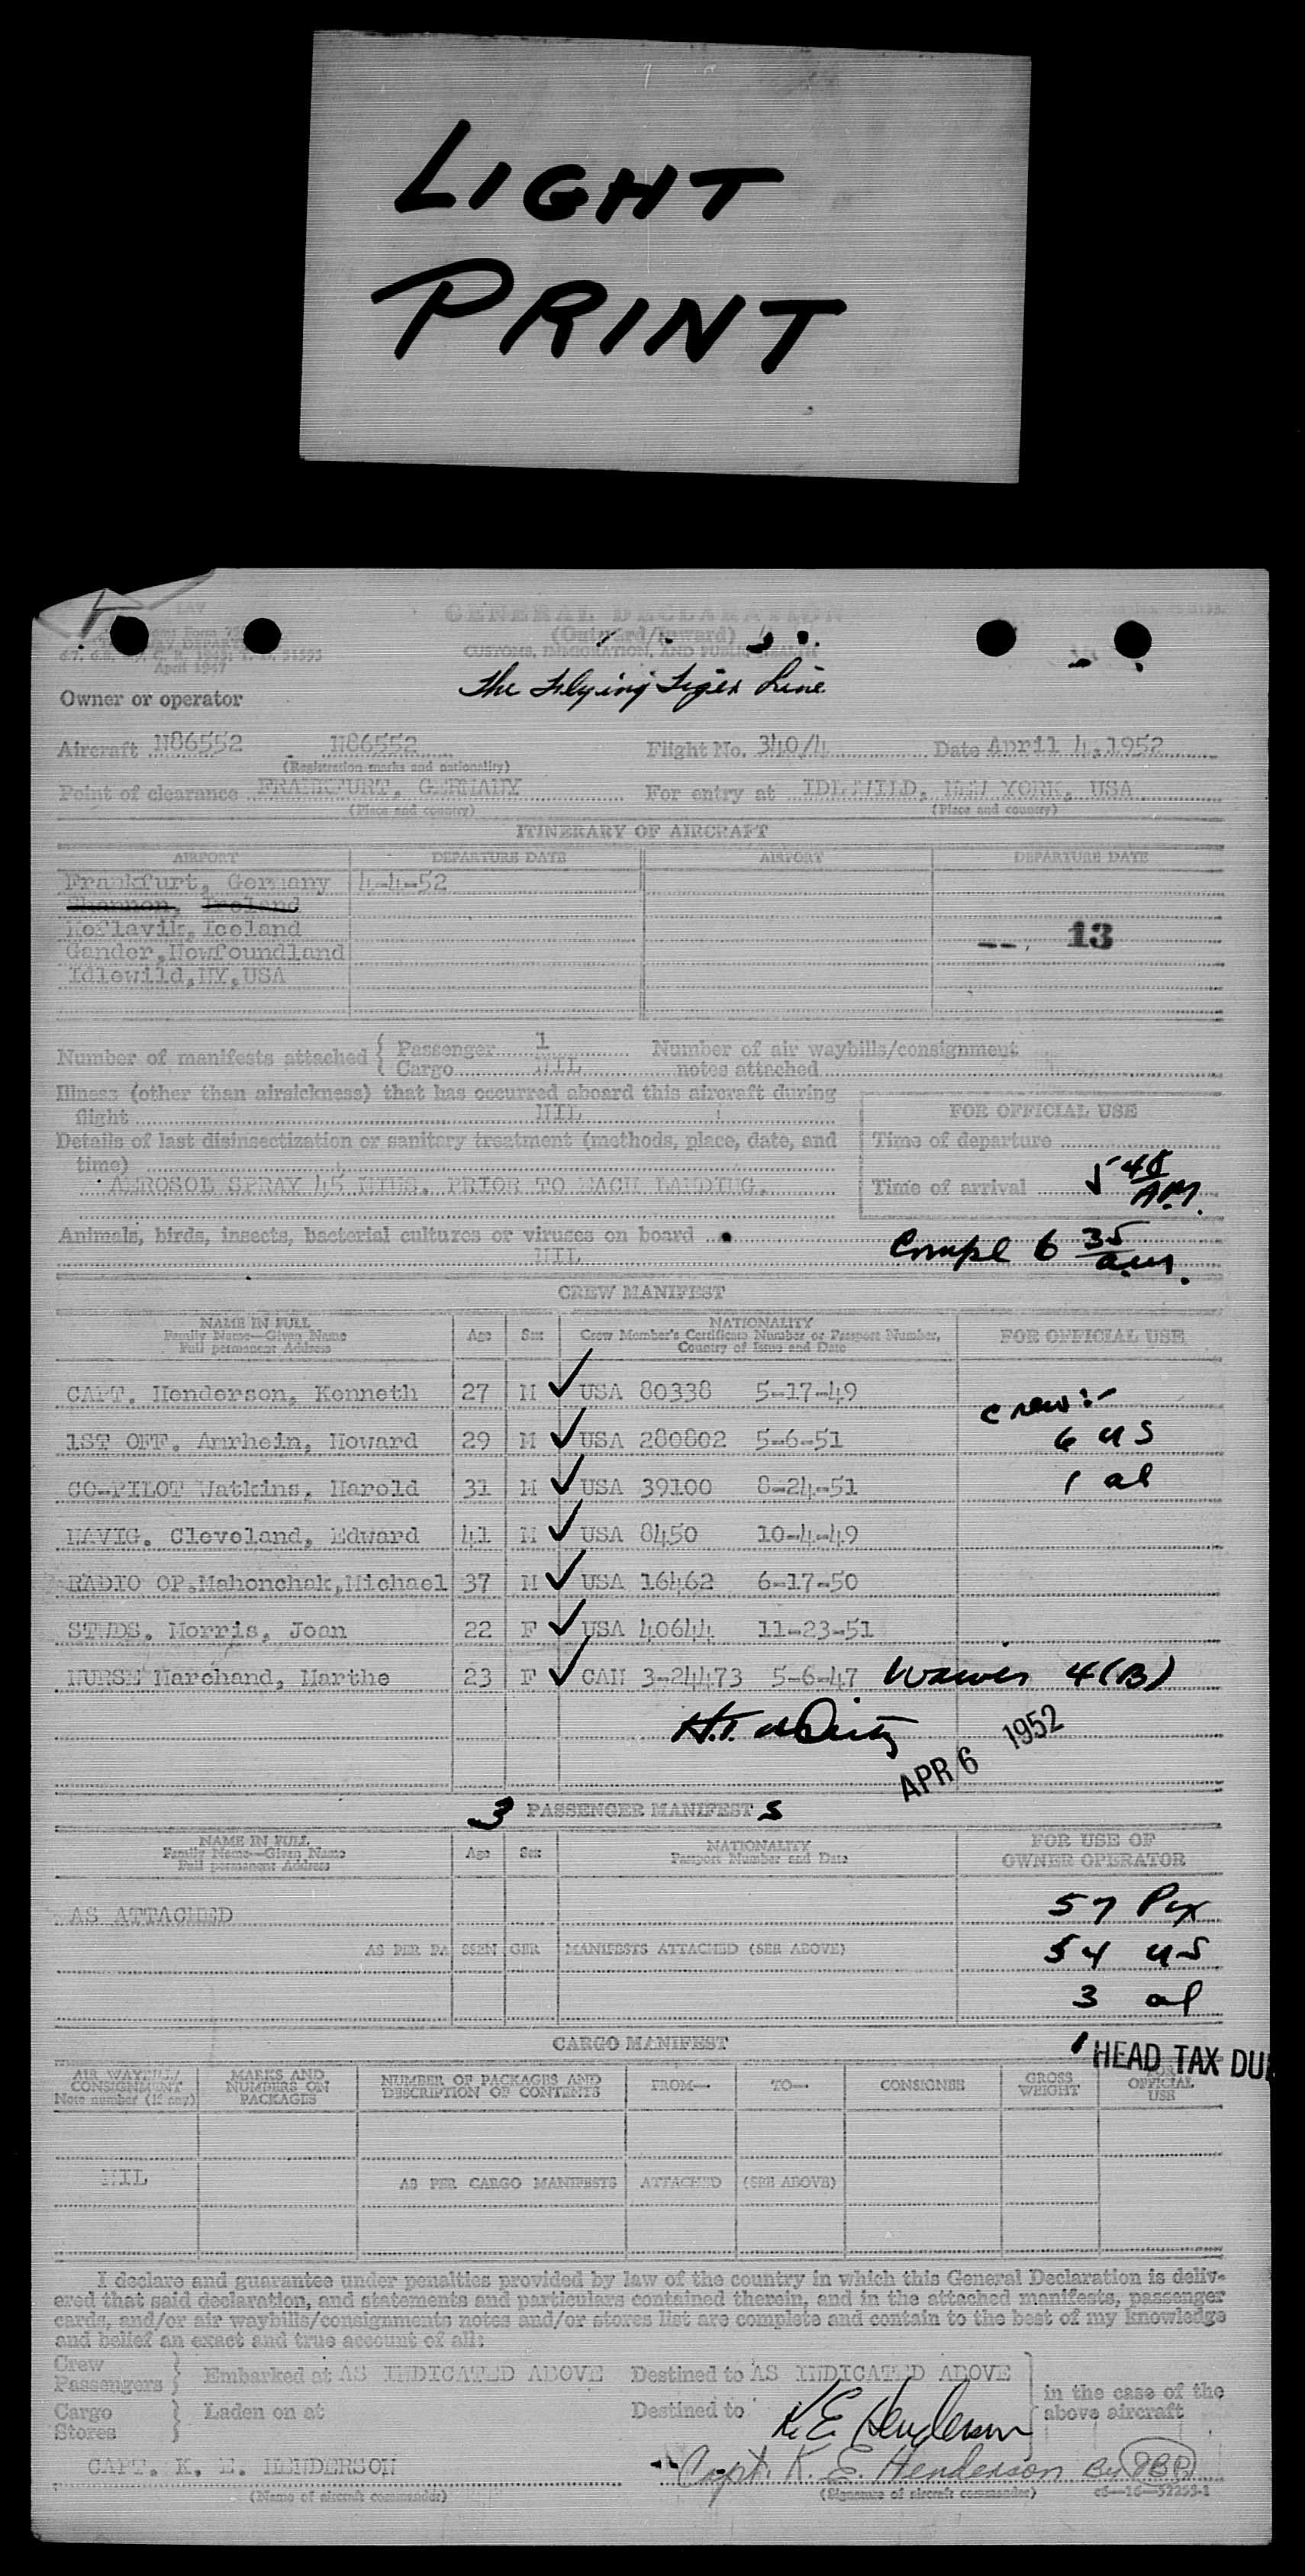 LIGHT
PRINT
GENERAL DECLARATION
(Outward/Inward)
CUSTOMS, IMMIGRATION, AND PUBLIC HEALTH
April 1947
The Flying Tiger Line
Owner or operator
Aircraft N86552 - N86552 Flight No. 340/4 Date April 4, 1952
(Registration marks and nationality)
Point of clearance FRANKFURT, GERMANY For entry at IDLEWILD, NEW YORK, USA
(Place and country) (Place and country)
ITINERARY OF AIRCRAFT
AIRPORT DEPARTURE DATE AIRPORT DEPARTURE DATE
Frankfurt, Germany 4-4-52
Shannon, Ireland
Keflavik, Iceland 13
Gander, Newfoundland
Idlewild, NY, USA
Number of manifests attached { Passenger 1 Number of air waybills/consignment
Cargo NIL notes attached
Illness (other than airsickness) that has occurred aboard this aircraft during
flight NIL
FOR OFFICIAL USE
Details of last disinsectization or sanitary treatment (methods, place, date, and
time)
Time of departure
AEROSOL SPRAY 45 MINS. PRIOR TO EACH LANDING.
Time of arrival 5 48 AM.
Animals, birds, insects, bacterial cultures or viruses on board
NIL
Compl 6 35 am.
CREW MANIFEST
NAME IN FULL
Family Name—Given Name
Full permanent Address
Age Sex
NATIONALITY
Crew Member's Certificate Number or Passport Number,
Country of Issue and Date
FOR OFFICIAL USE
CAPT. Henderson, Kenneth 27 M ✓ USA 80338 5-17-49
Crew:-
1ST OFF. Amrhein, Howard 29 M ✓ USA 280802 5-6-51 6 US
CO-PILOT Watkins, Harold 31 M ✓ USA 39100 8-24-51 1 al
NAVIG. Cleveland, Edward 41 M ✓ USA 8450 10-4-49
RADIO OP. Mahonchak, Michael 37 M ✓ USA 16462 6-17-50
STWDS. Morris, Joan 22 F ✓ USA 40644 11-23-51
NURSE Marchand, Marthe 23 F ✓ CAN 3-24473 5-6-47 Waiver 4(B)
APR 6 1952
3 PASSENGER MANIFEST S
NAME IN FULL
Family Name—Given Name
Full permanent Address
Age Sex
NATIONALITY
Passport Number and Date
FOR USE OF
OWNER OPERATOR
AS ATTACHED 57 Pax
AS PER PASSENGER MANIFESTS ATTACHED (SEE ABOVE) 54 US
3 al
CARGO MANIFEST
1 HEAD TAX DUE
AIR WAYBILL/
CONSIGNMENT
Note number (if any)
MARKS AND
NUMBERS ON
PACKAGES
NUMBER OF PACKAGES AND
DESCRIPTION OF CONTENTS
FROM— TO— CONSIGNEE
GROSS
WEIGHT
FOR
OFFICIAL
USE
NIL AS PER CARGO MANIFESTS ATTACHED (SEE ABOVE)
I declare and guarantee under penalties provided by law of the country in which this General Declaration is deliv-
ered that said declaration, and statements and particulars contained therein, and in the attached manifests, passenger
cards, and/or air waybills/consignments notes and/or stores list are complete and contain to the best of my knowledge
and belief an exact and true account of all:
Crew
Passengers } Embarked at AS INDICATED ABOVE Destined to AS INDICATED ABOVE
in the case of the
above aircraft
Cargo
Stores } Laden on at Destined to
K.E. Henderson
CAPT. K. E. HENDERSON Capt. K. E. Henderson By PBP
(Name of aircraft commander) (Signature of aircraft commander) c6—16—52253-1